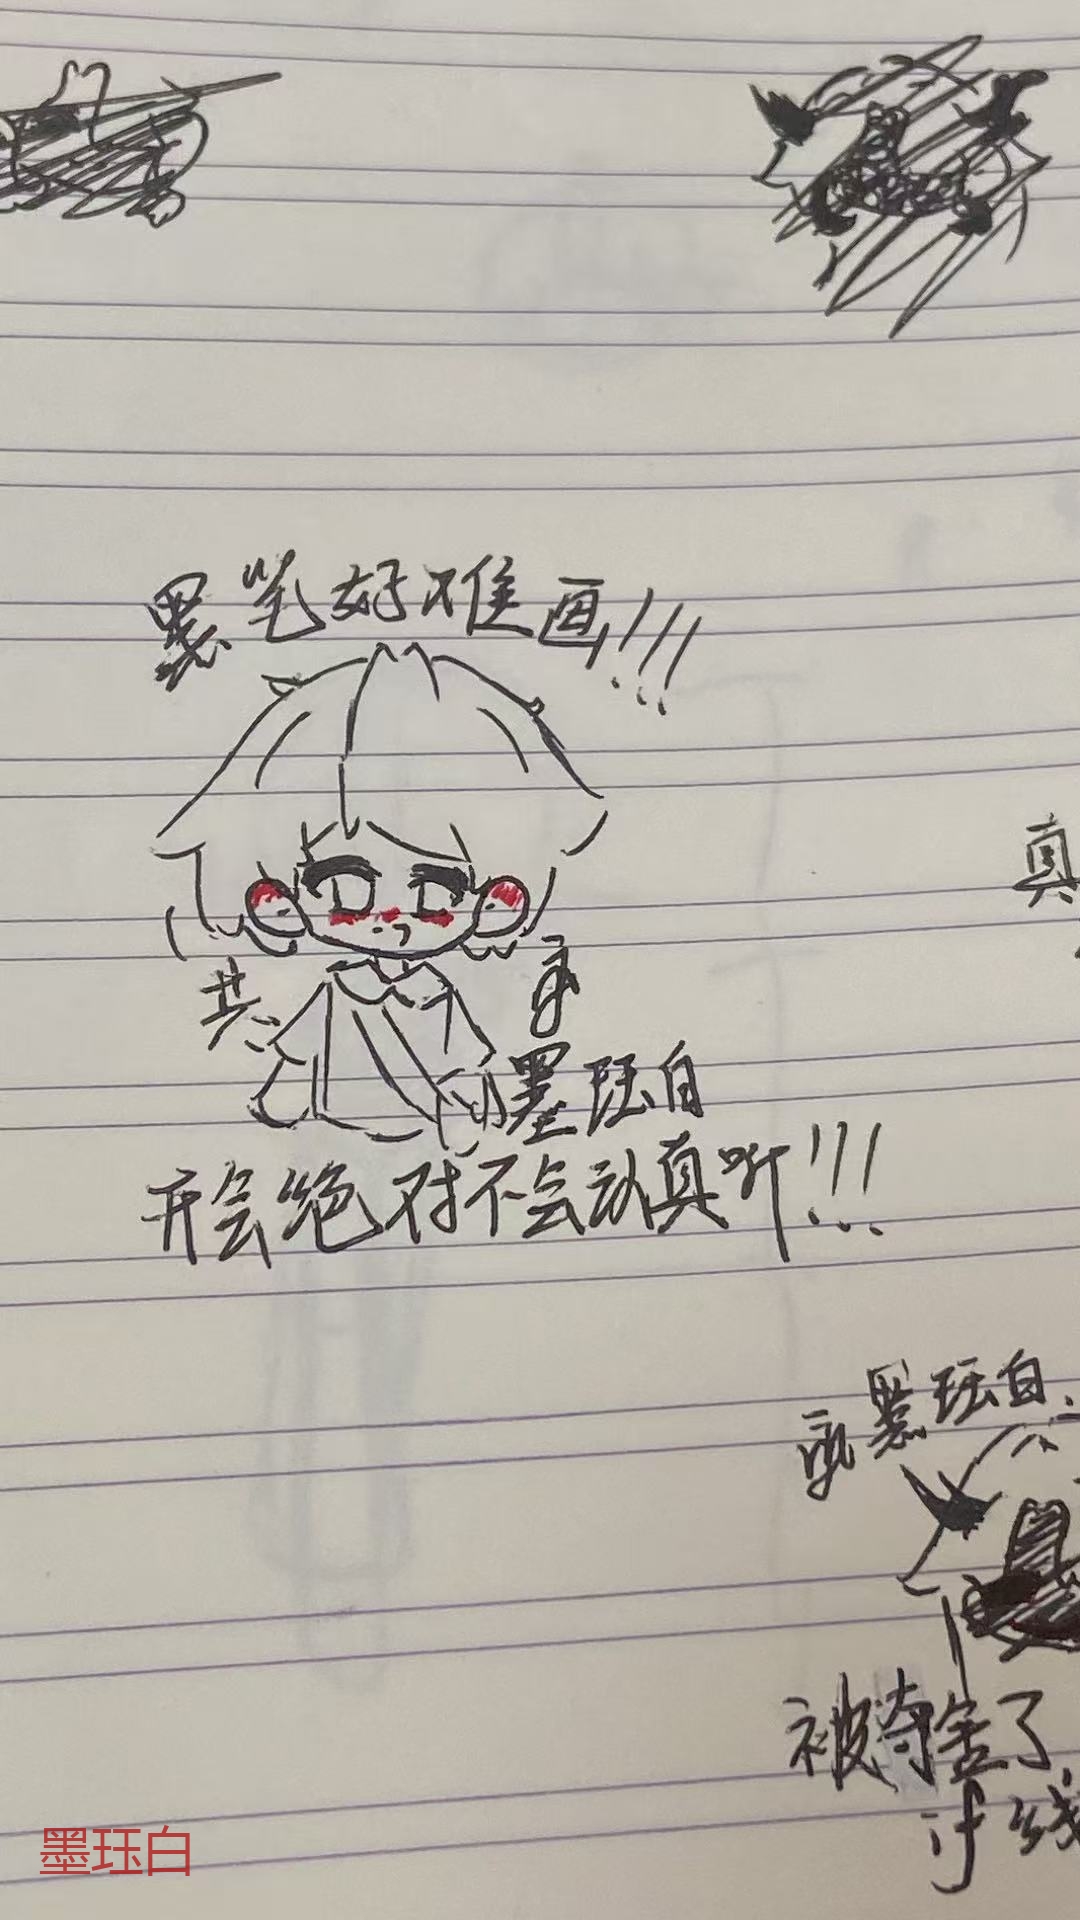 黑笔好难画!!!
真
共
墨珏白
开会绝对不会认真听!!!
墨珏白
被夺舍了
if线
墨珏白